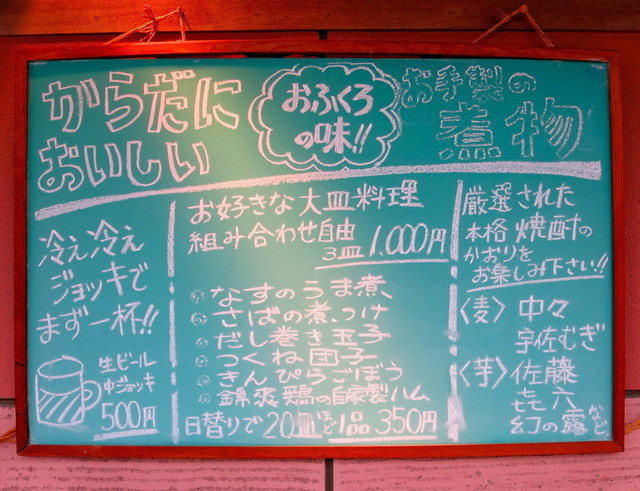 からだに
おいしい
おふくろ
の味!!
お手製の
煮物
冷え冷え
ジョッキで
まず一杯!!
生ビール
中ジョッキ
500円
お好きな大皿料理
組み合わせ自由
3皿 1.000円
なすのうま煮
さばの煮つけ
だし巻き玉子
つくね団子
きんぴらごぼう
錦爽鶏の自家製ハム
日替りで20皿ほど 1品350円
厳選された
本格焼酎の
かおりを
お楽しみ下さい!!
〈麦〉中々
宇佐むぎ
〈芋〉佐藤
㐂六
幻の露など